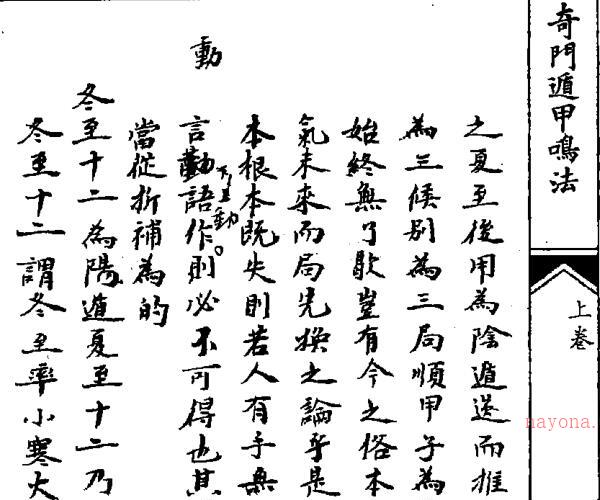 奇門遁甲鳴法
上卷
之夏至後用為陰遁逆而推
為三候別為三局順甲子為
始終無了歇豈有今之俗本
氣未來而局先換之論乎是
本根本既失則若人有手無
言勷語作則必不可得也其
動
當從折補為的
冬至十二為陽遁夏至十二乃
冬至十二謂冬至率小寒大
nayona.